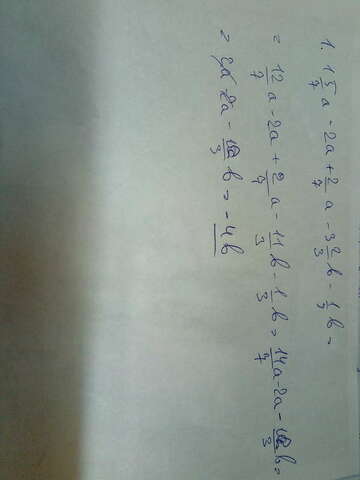 1. 1 5/7 a - 2a + 2/7 a - 3 2/3 b - 1/3 b =
= 12/7 a - 2a + 2/7 a - 11/3 b - 1/3 b = 14/7 a - 2a - 12/3 b =
= 2a - 2a - 12/3 b = - 4b